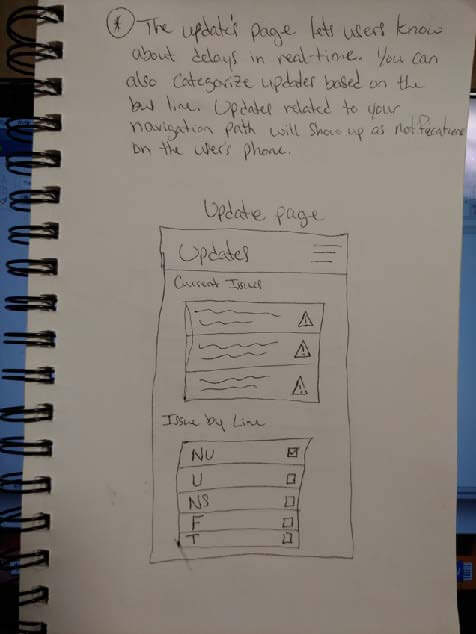 * The update's page lets users know
about delays in real-time. You can
also categorize updates based on the
bus line. Updates related to your
navigation path will show up as notifications
on the user's phone.
Update page
Updates
Current Issues
Issue by Line
NU
U
NS
F
T